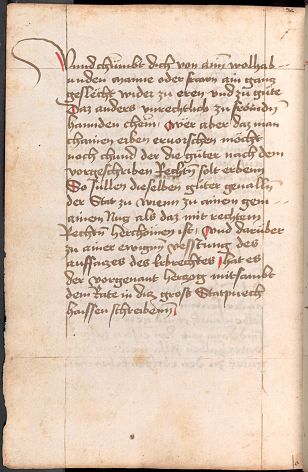 Vnnd chumbt dich von ainn wolhab
unden manne oder frawn ain gantz
geslecht wider zu eren vnd zu güte
Daz anders vnrechtlich zu frömdn
hannden chem / Wer aber daz man
chainen erben eruorschen möcht
noch chund der die güter nach dem
vorgeschriben Rechtn solt erbenn
So süllen dieselben güter geualln
der Stat zu wienn zu ainen gem
ainen Nutz als daz mit rechtem
Rechtn herchömen ist / vnd darüber
zu ainer ewigen vesstung des
auffsatzes des erbrechtes / hat es
der vorgenant hertzog mitsambt
dem Rate in daz gross Statpuech
haissen schreibenn